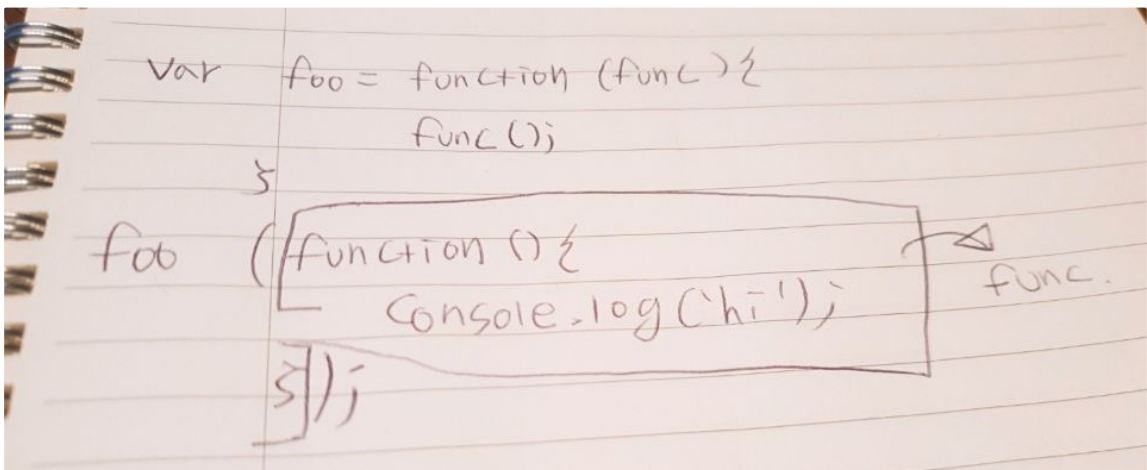 var foo = function (func) {
func();
}
foo (function () {
func.
console.log('hi');
});